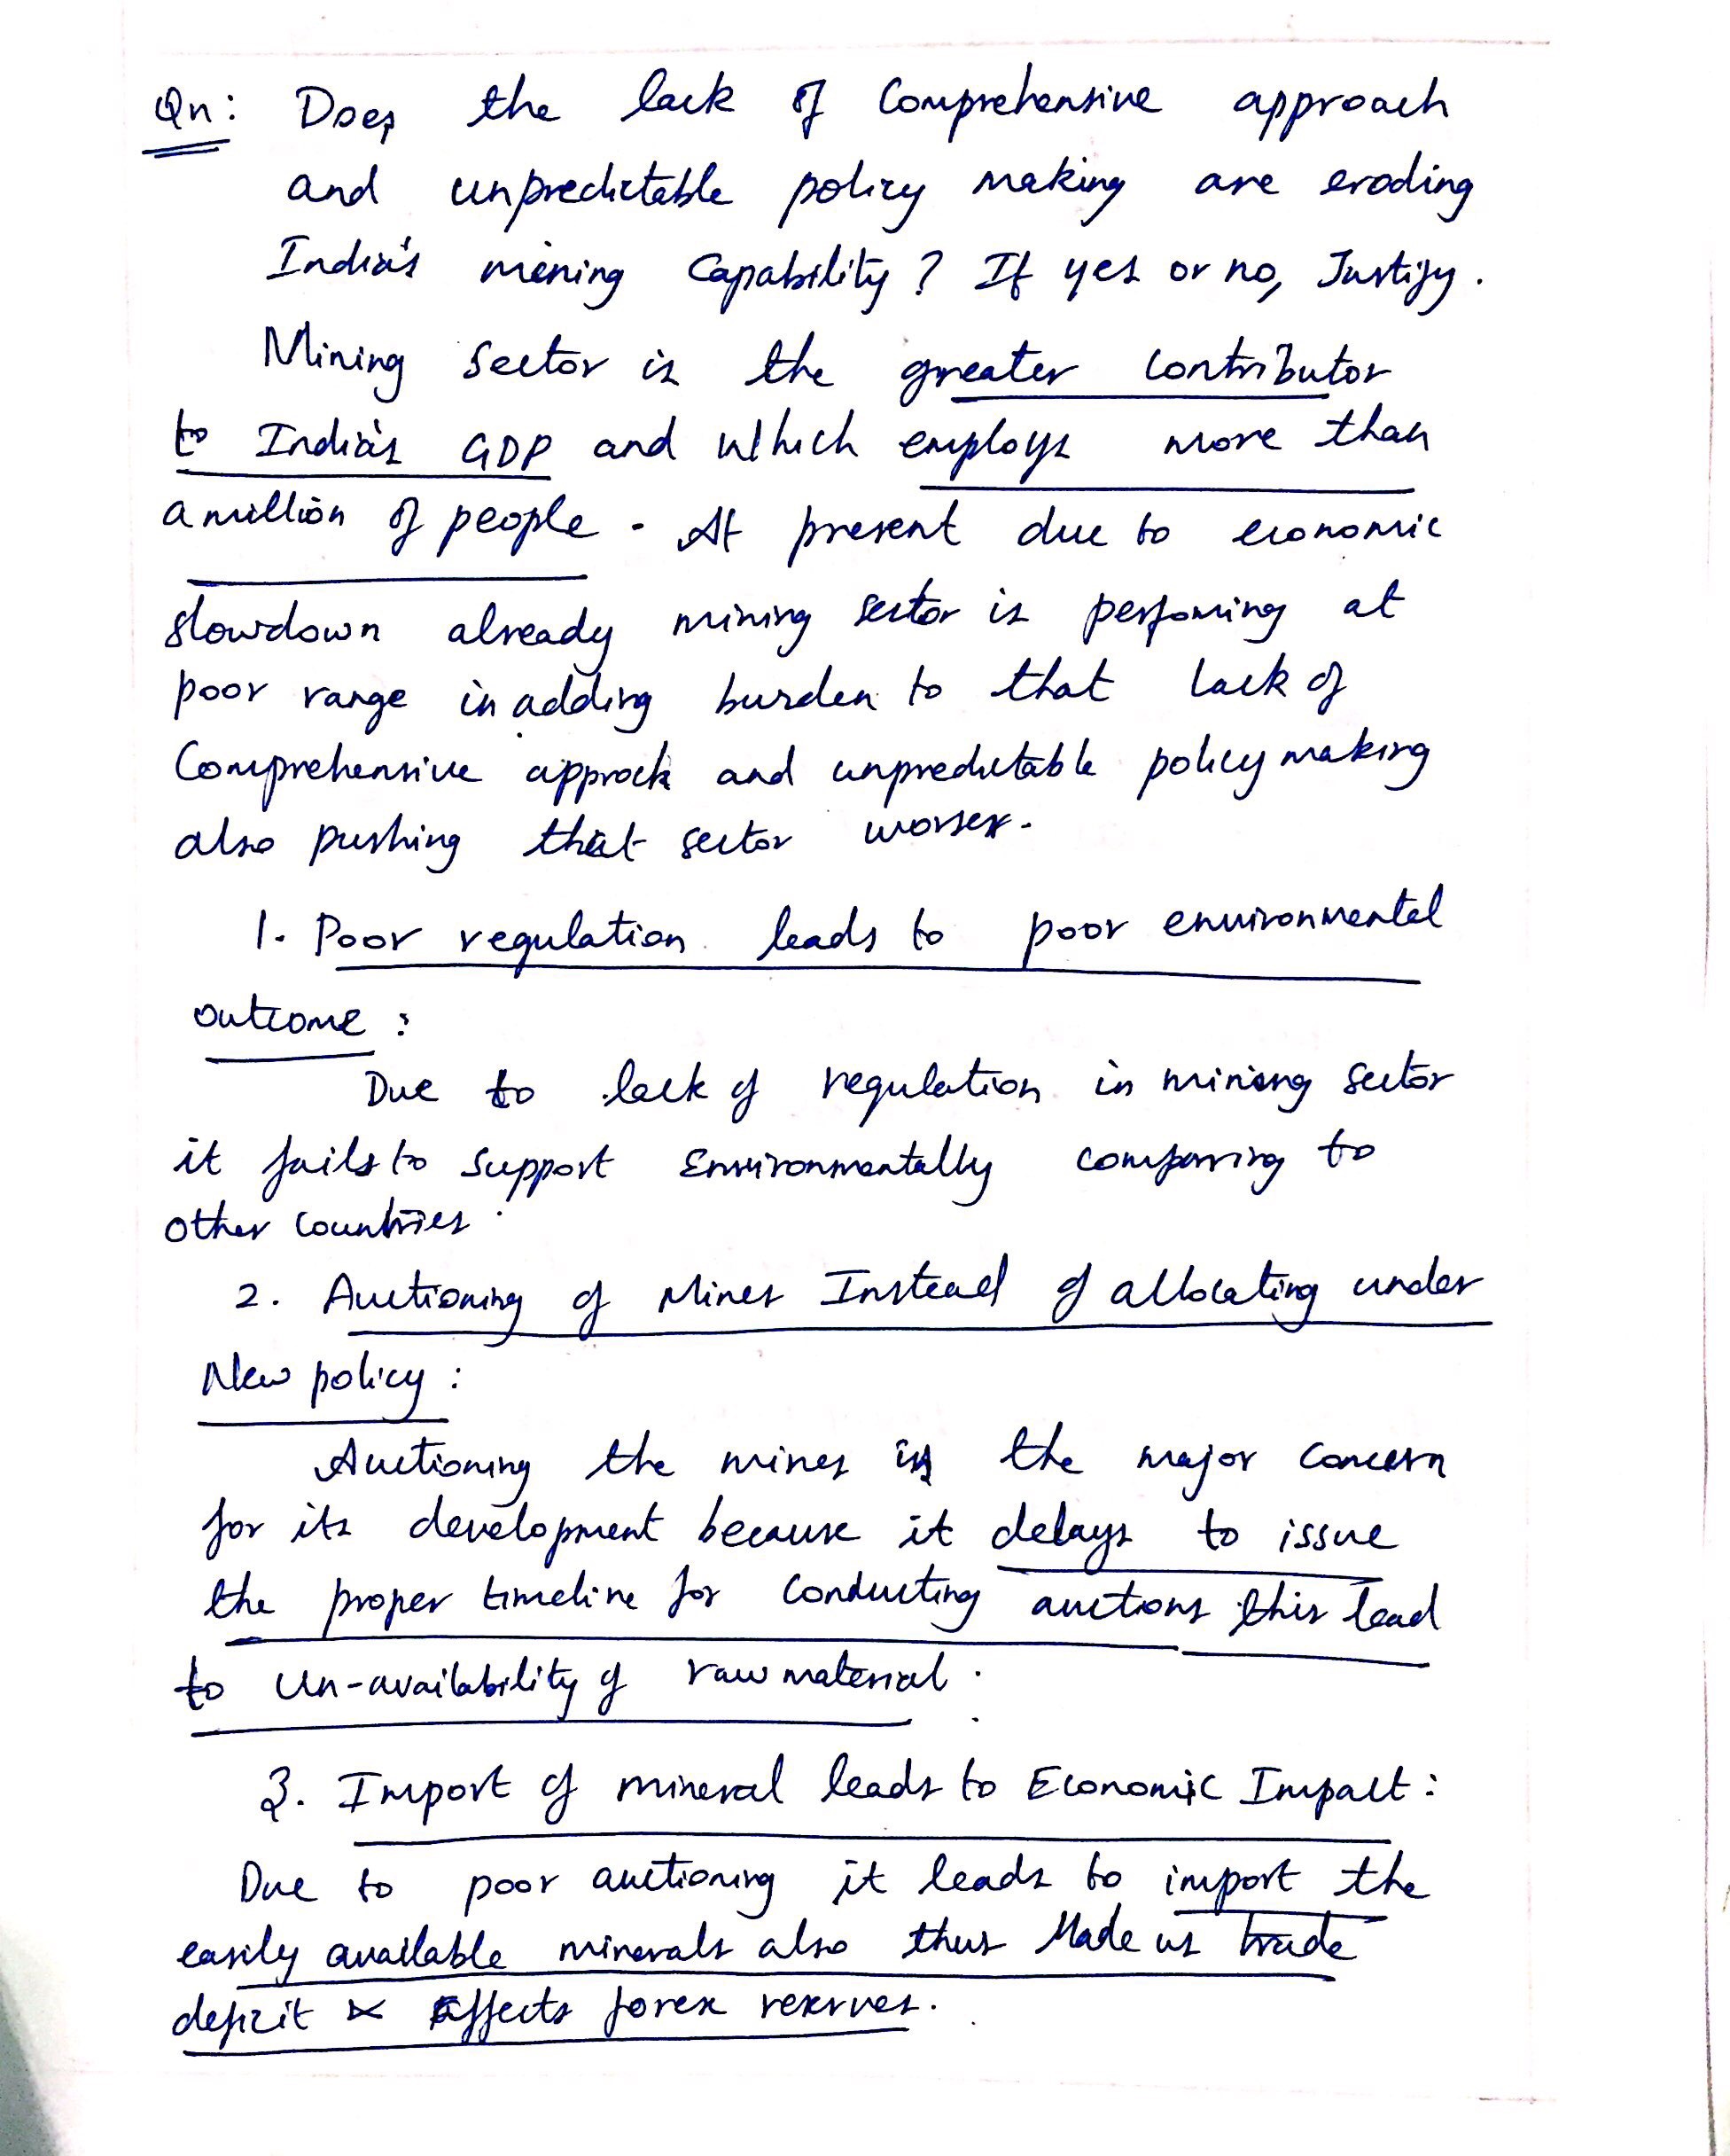 Qn: Does the lack of Comprehensive approach
and unpredictable policy making are eroding
India's mining Capability? If yes or no, Justify.
Mining Sector is the greater contributor
to India's GDP and which employs more than
a million of people. At present due to economic
slowdown already mining sector is perfoming at
poor range in adding burden to that lack of
Comprehensive approch and unpredictable policy making
also pushing that sector worser.
1. Poor regulation leads to poor environmental
outcome:
Due to lack of regulation in mining Sector
it fails to support Environmentally comparring to
other countries.
2. Auctioning of Mines Instead of allocating under
New policy:
Auctioning the mines is the major concern
for its development because it delays to issue
the proper timeline for conducting auctions this lead
to un-availability of raw material.
3. Import of mineral leads to Economic Impact:
Due to poor auctioning it leads to import the
easily available minerals also thus Made us trade
deficit & affects forex reserves.